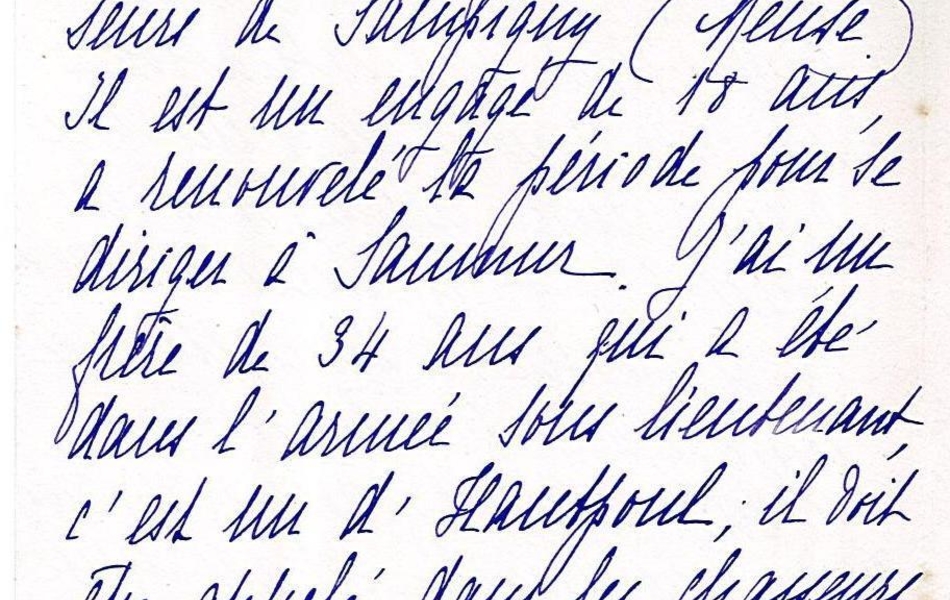 seurs de Sampigny (Meuse)
Il est un engagé de 18 ans,
a renouvelé la période pour se
diriger à Saumur. J'ai un
frère de 34 ans qui a été
dans l'armée sous lieutenant,
c'est un d'Hautpoul, il doit
être appelé dans les chasseurs